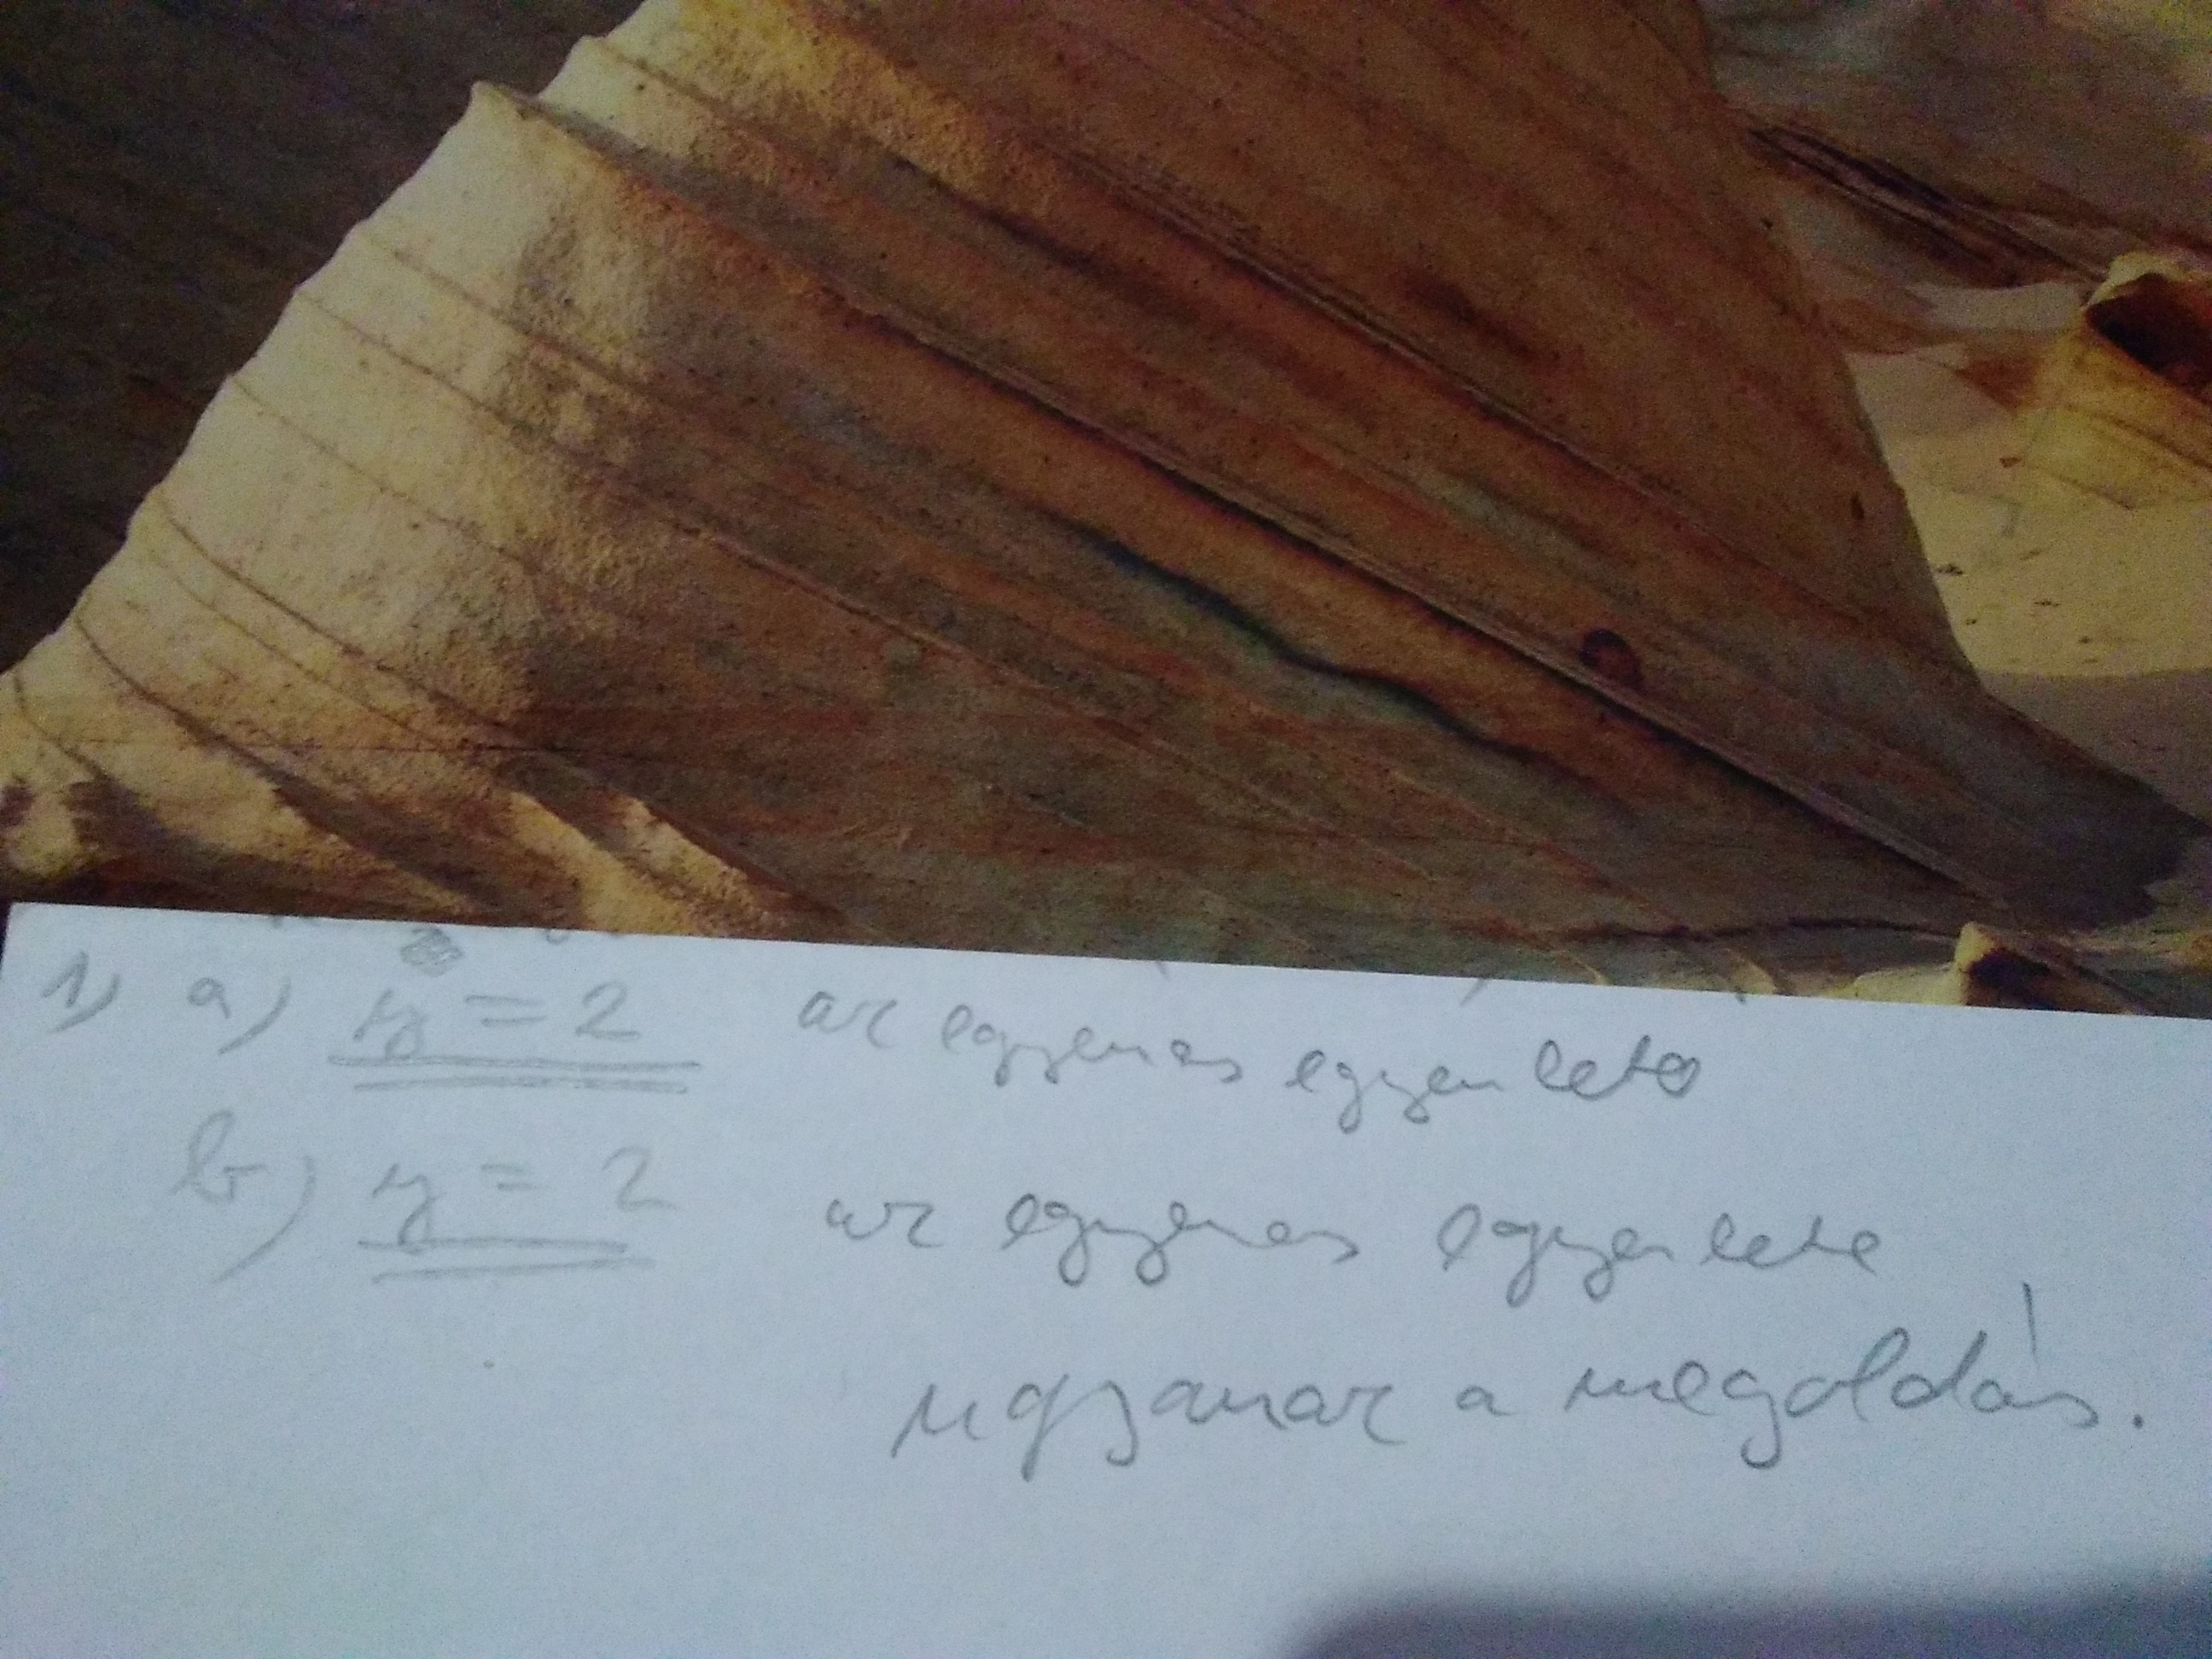 1) a) y = 2 az egyenes egyenlete
b) y = 2 az egyenes egyenlete
ugyanaz a megoldás.